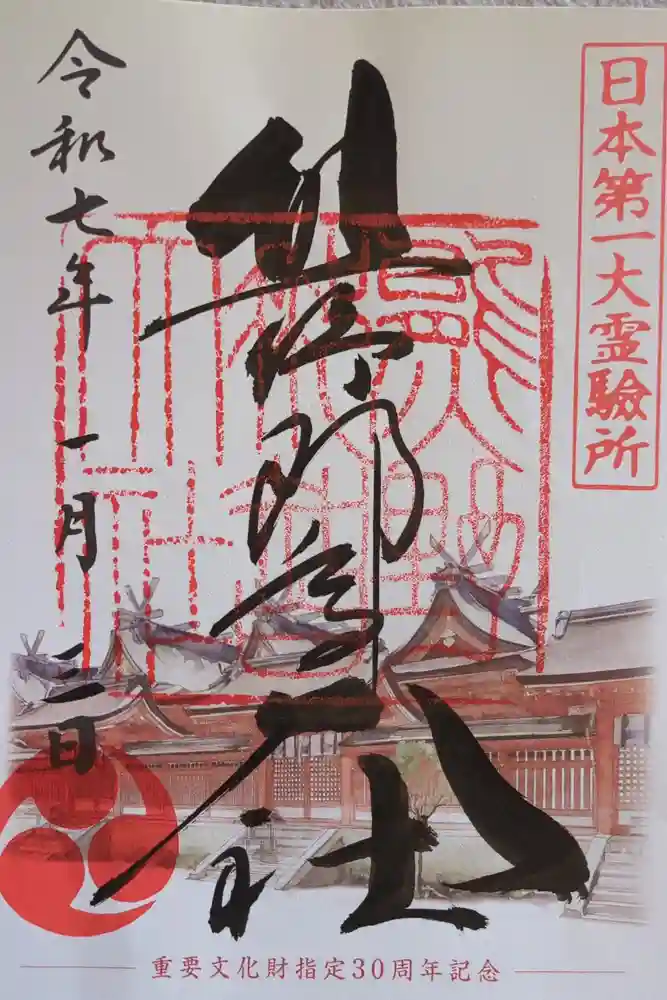 日本第一大霊験所
熊野 社
令和七年一月三日
重要文化財指定30周年記念